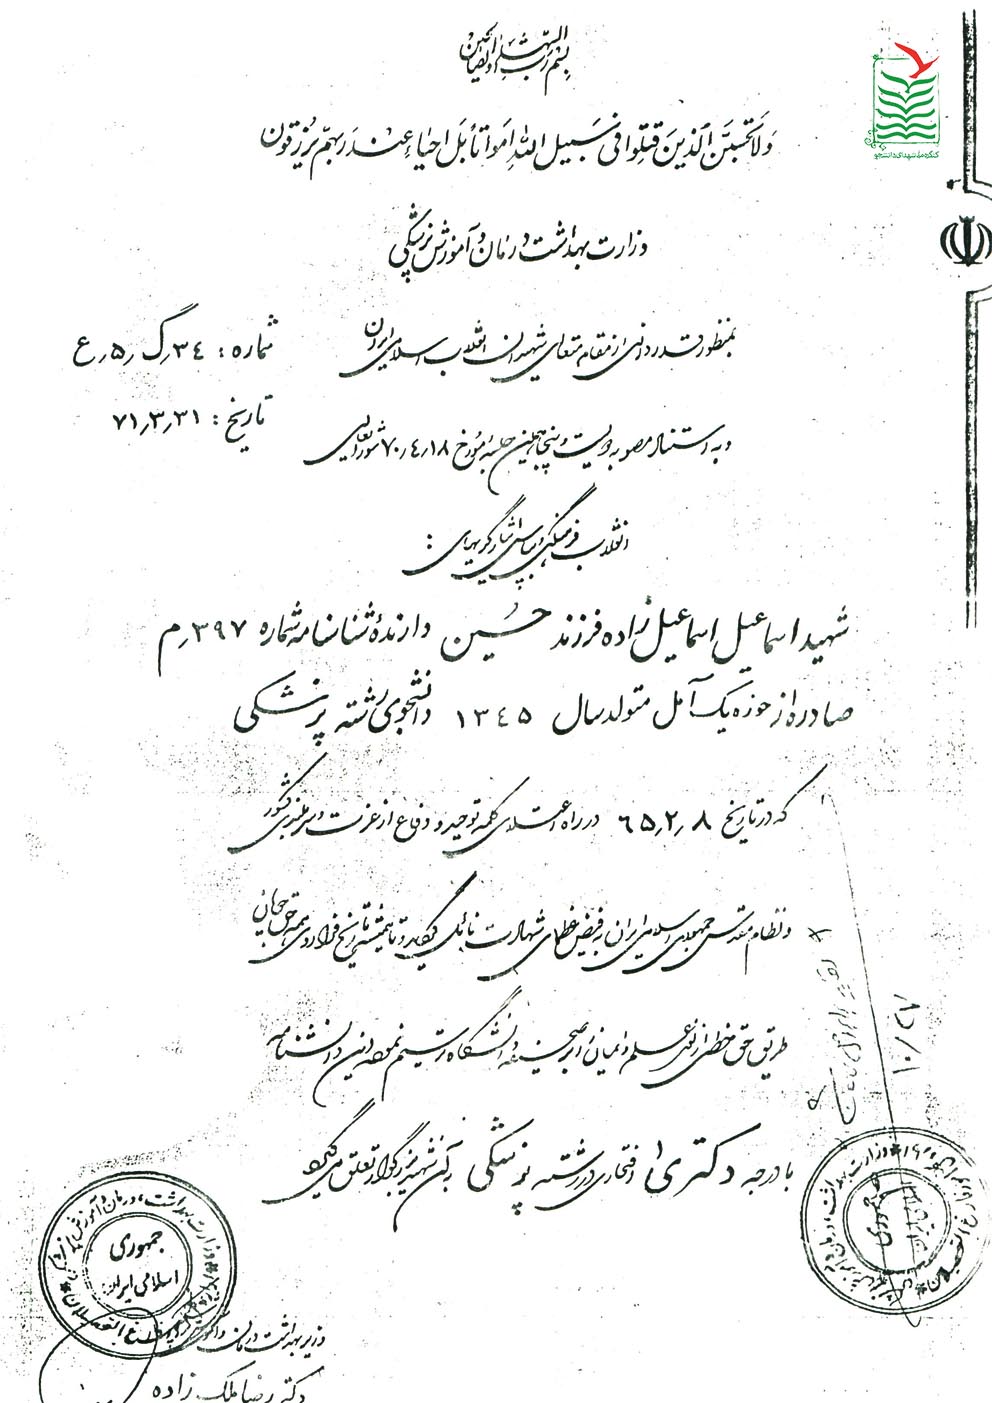 بسم رب الشهداء و الصالحین
کنگره ملی شهدای دانشجو
وَلا تَحسَبَنَّ الَّذینَ قُتِلوا فی سَبیلِ اللهِ اَمواتاً بَل اَحیاءٌ عِندَ رَبِّهِم یُرزَقون
وزارت بهداشت درمان و آموزش پزشکی
بمنظور قدردانی از مقام متعالی شهیدان انقلاب اسلامی ایران
شماره : ۳۴ر گ ر۵ر ع
و به استناد مصوبه دویست و پنجاهمین جلسه مورخ ۷۰٫۴٫۱۸ شورایعالی
تاریخ : ۷۱٫۳٫۳۱
انقلاب فرهنگی و بپاس ایثارگریهای :
شهید اسماعیل اسماعیل زاده فرزند حسین دارندهٔ شناسنامه شماره ۳۹۷ر م
صادره از حوزه یک آمل متولد سال ۱۳۴۵ دانشجوی رشته پزشکی
که در تاریخ ۶۵٫۲٫۸ در راه اعتلای کلمه توحید و دفاع از عزت و سربلندی کشور
و نظام مقدس جمهوری اسلامی ایران به فیض عظمای شهادت نائل گردید و تا همیشه تاریخ فراروی همه حق جویان
طریق حق خطی از نور علم و ایمان را بر صحیفه دانشگاه ترسیم نموده این دانشنامه
با درجه دکترای افتخاری در رشته پزشکی به آن شهید بزرگوار تعلق می گیرد
۱۰/۲۷
جمهوری
اسلامی ایران
وزارت بهداشت، درمان و آموزش پزشکی
وزیر بهداشت درمان و آموزش پزشکی
دکتر رضا ملک زاده